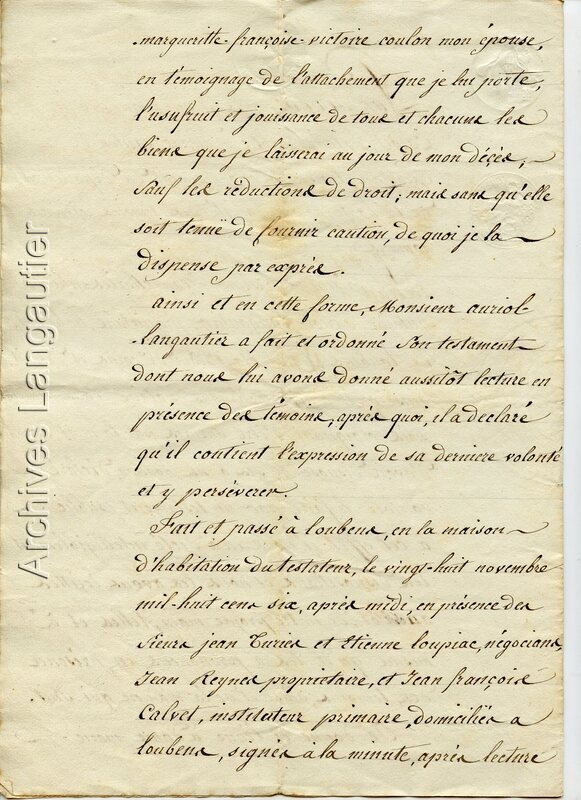 margueritte-françoise-victoire coulon mon épouse,
en témoignage de l'attachement que je lui porte,
l'usufruit et jouissance de tous et chacuns les
biens que je laisserai au jour de mon déçès,
Sauf les réductions de droit; mais sans qu'elle
soit tenuë de fournir caution, de quoi je la
dispense par exprès.
ainsi et en cette forme, Monsieur auriol-
-Langautier a fait et ordonné Son testament
dont nous lui avons donné aussitôt lecture en
présence des témoins, après quoi, il a declaré
qu'il contient l'expression de sa derniere volonté
et y perséverer.
Fait et passé à loubens, en la maison
d'habitation du testateur, le vingt-huit novembre
mil-huit cens six, après midi, en présence des
Sieurs jean Turies et Etienne loupiac, négocians,
Jean Reynes propriétaire, et Jean françois
Calvet, instituteur primaire, domiciliés a
loubens, signés à la minute, après lecture
Archives Langautier